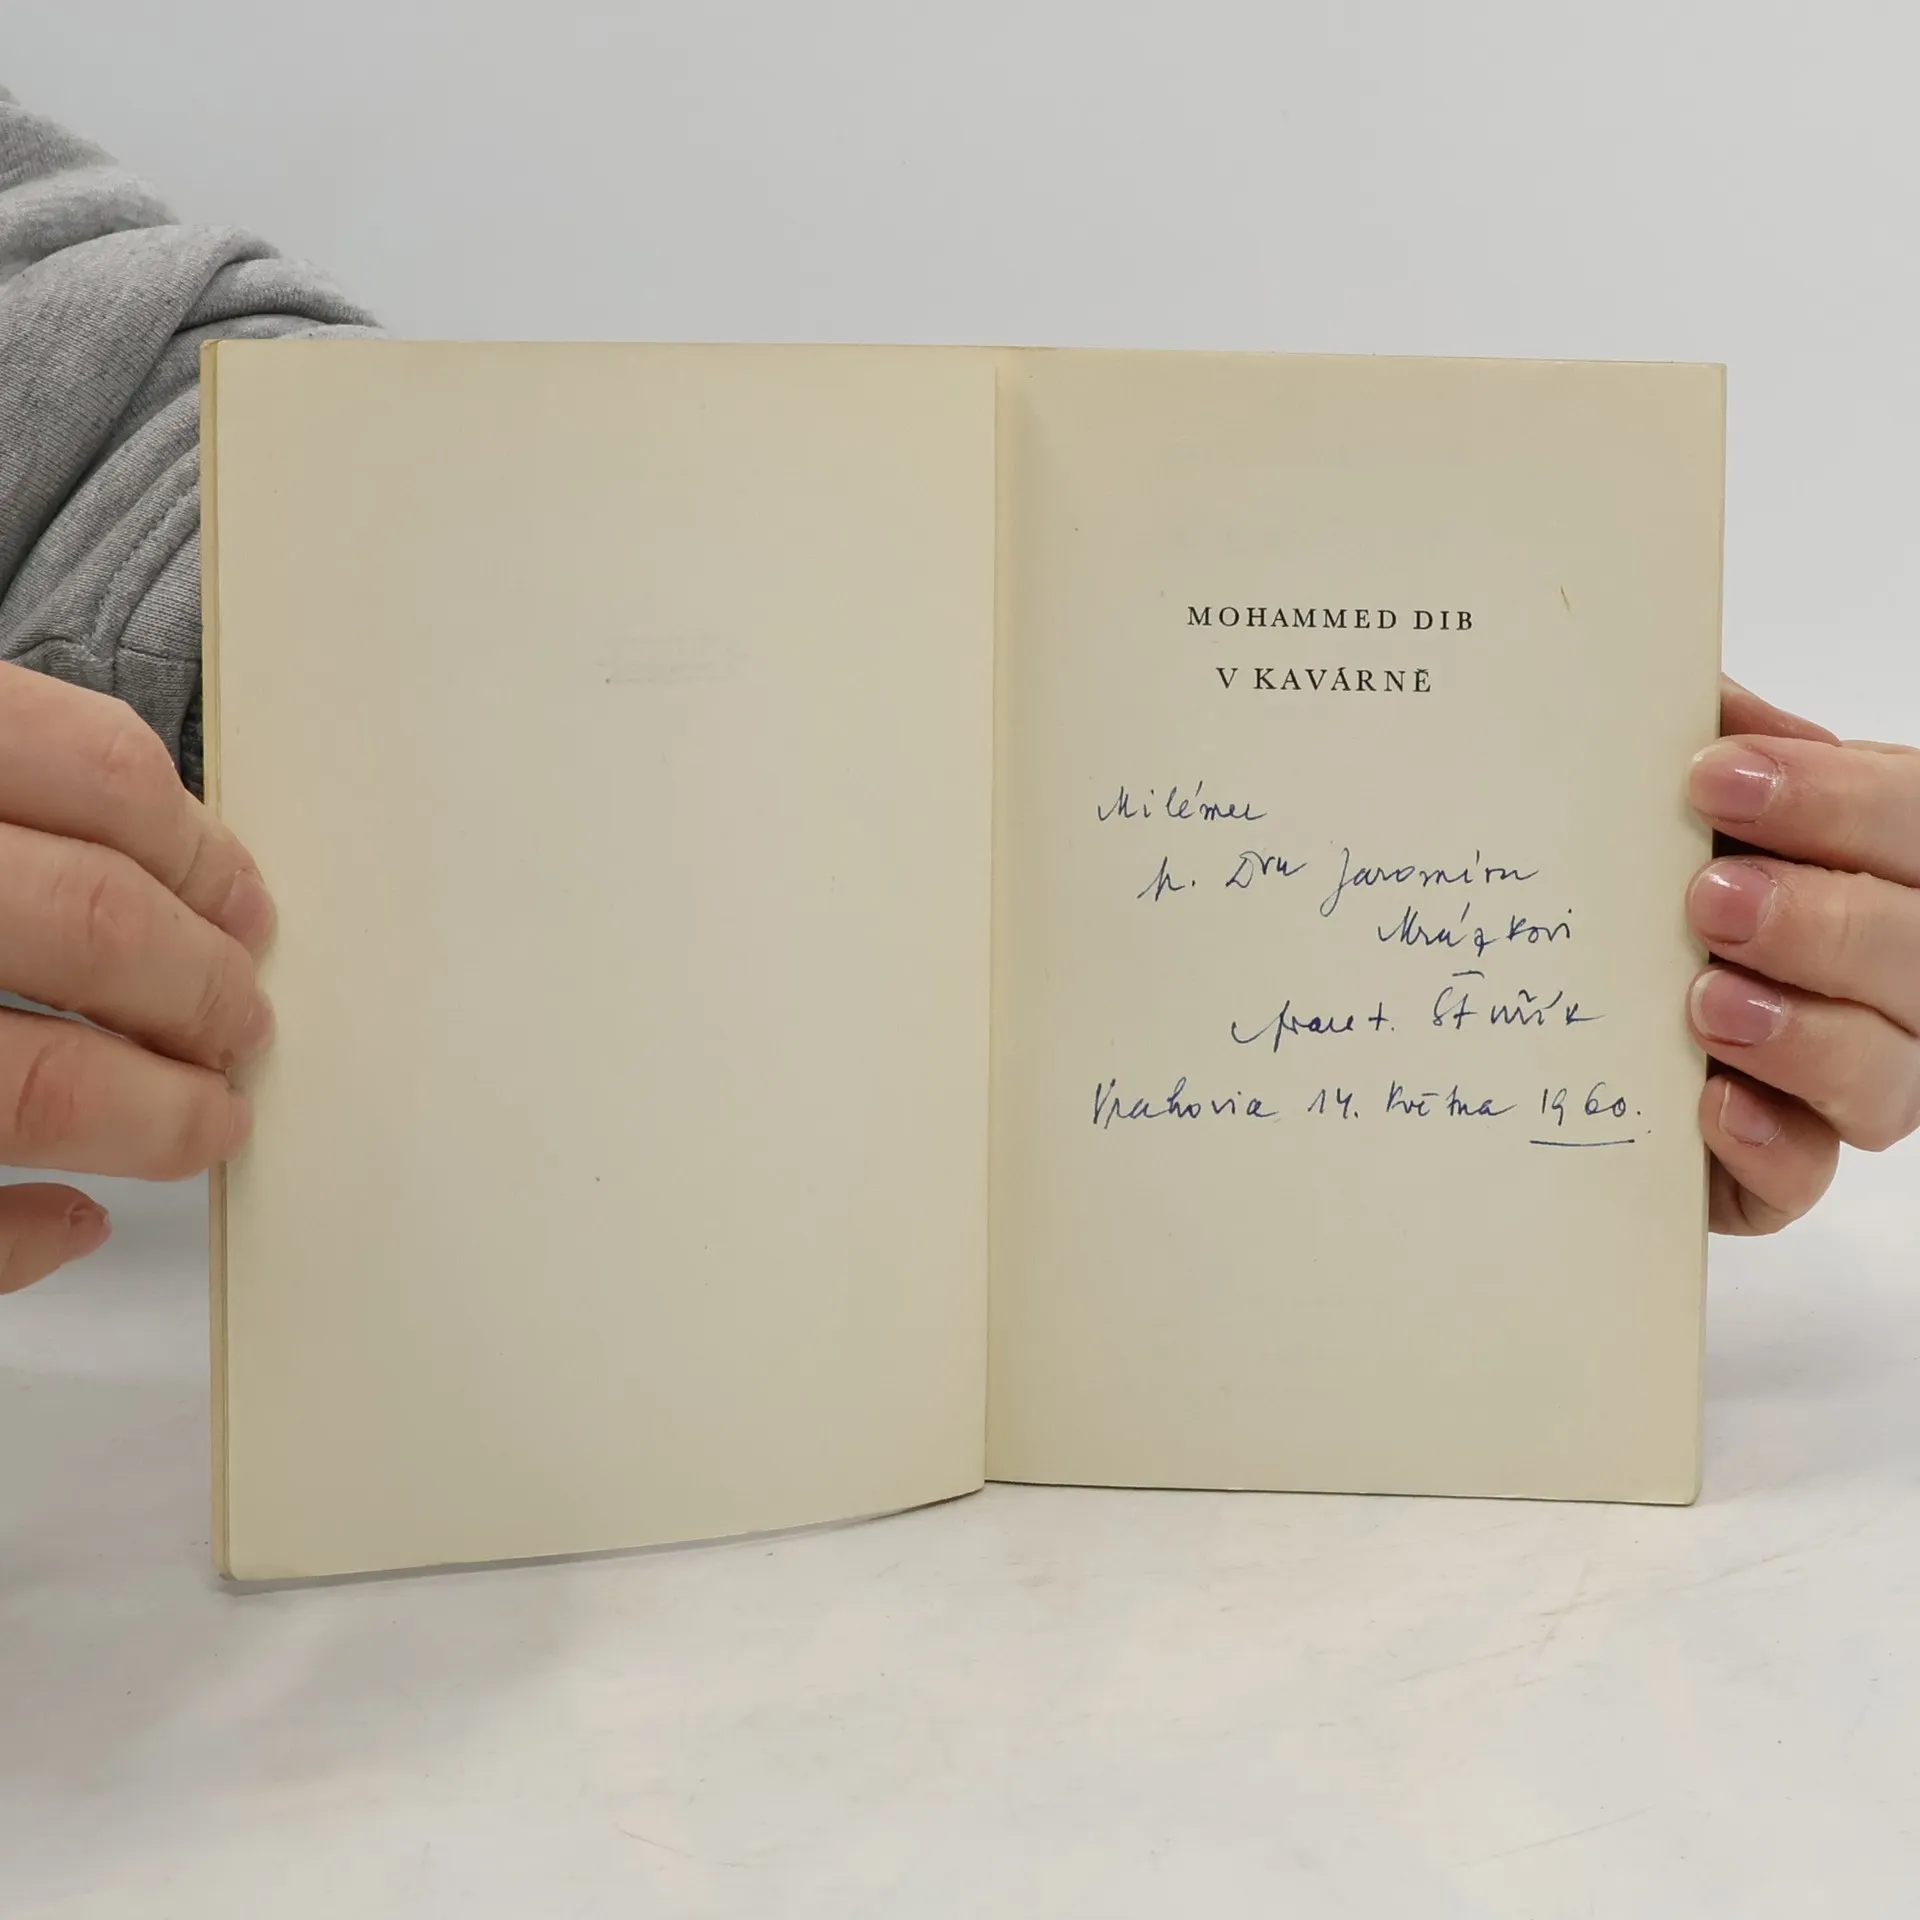 MOHAMMED DIB
V KAVÁRNĚ
Milému
p. Dru Jaromíru
Mrázkovi
Frant. Štuřík
14. května 1960.